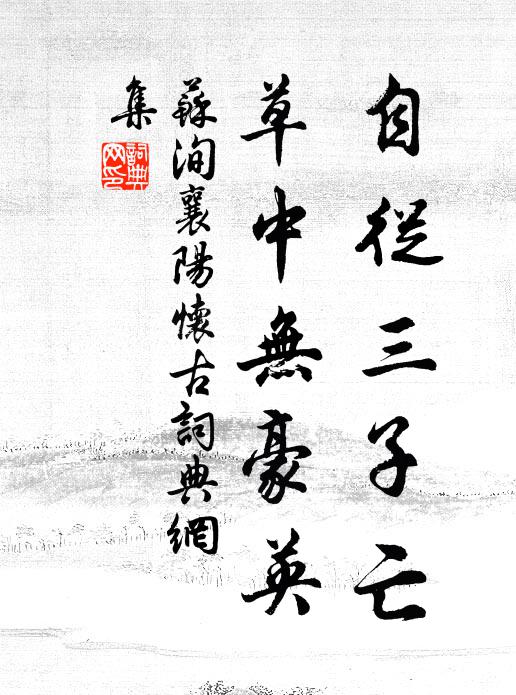 自從三子亡
草中無豪英
蘇洵襄陽懷古詞典網
集
詞典網印